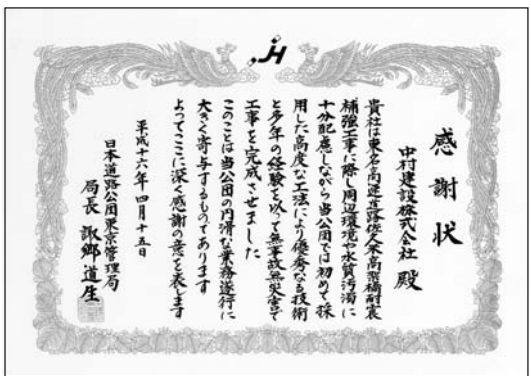 JH
感謝状
中村建設株式会社 殿
貴社は東名高速道路佐久東高架橋耐震
補強工事に際し周辺環境や水質汚濁に
十分配慮しながら当公団では初めて採
用した高度な工法により優秀なる技術
と多年の経験を以って無事故無災害で
工事を完成させました
このことは当公団の円滑な業務遂行に
大きく寄与するものであります
よってここに深く感謝の意を表します
平成十六年四月十五日
日本道路公団東京管理局
局長 諏郷道生